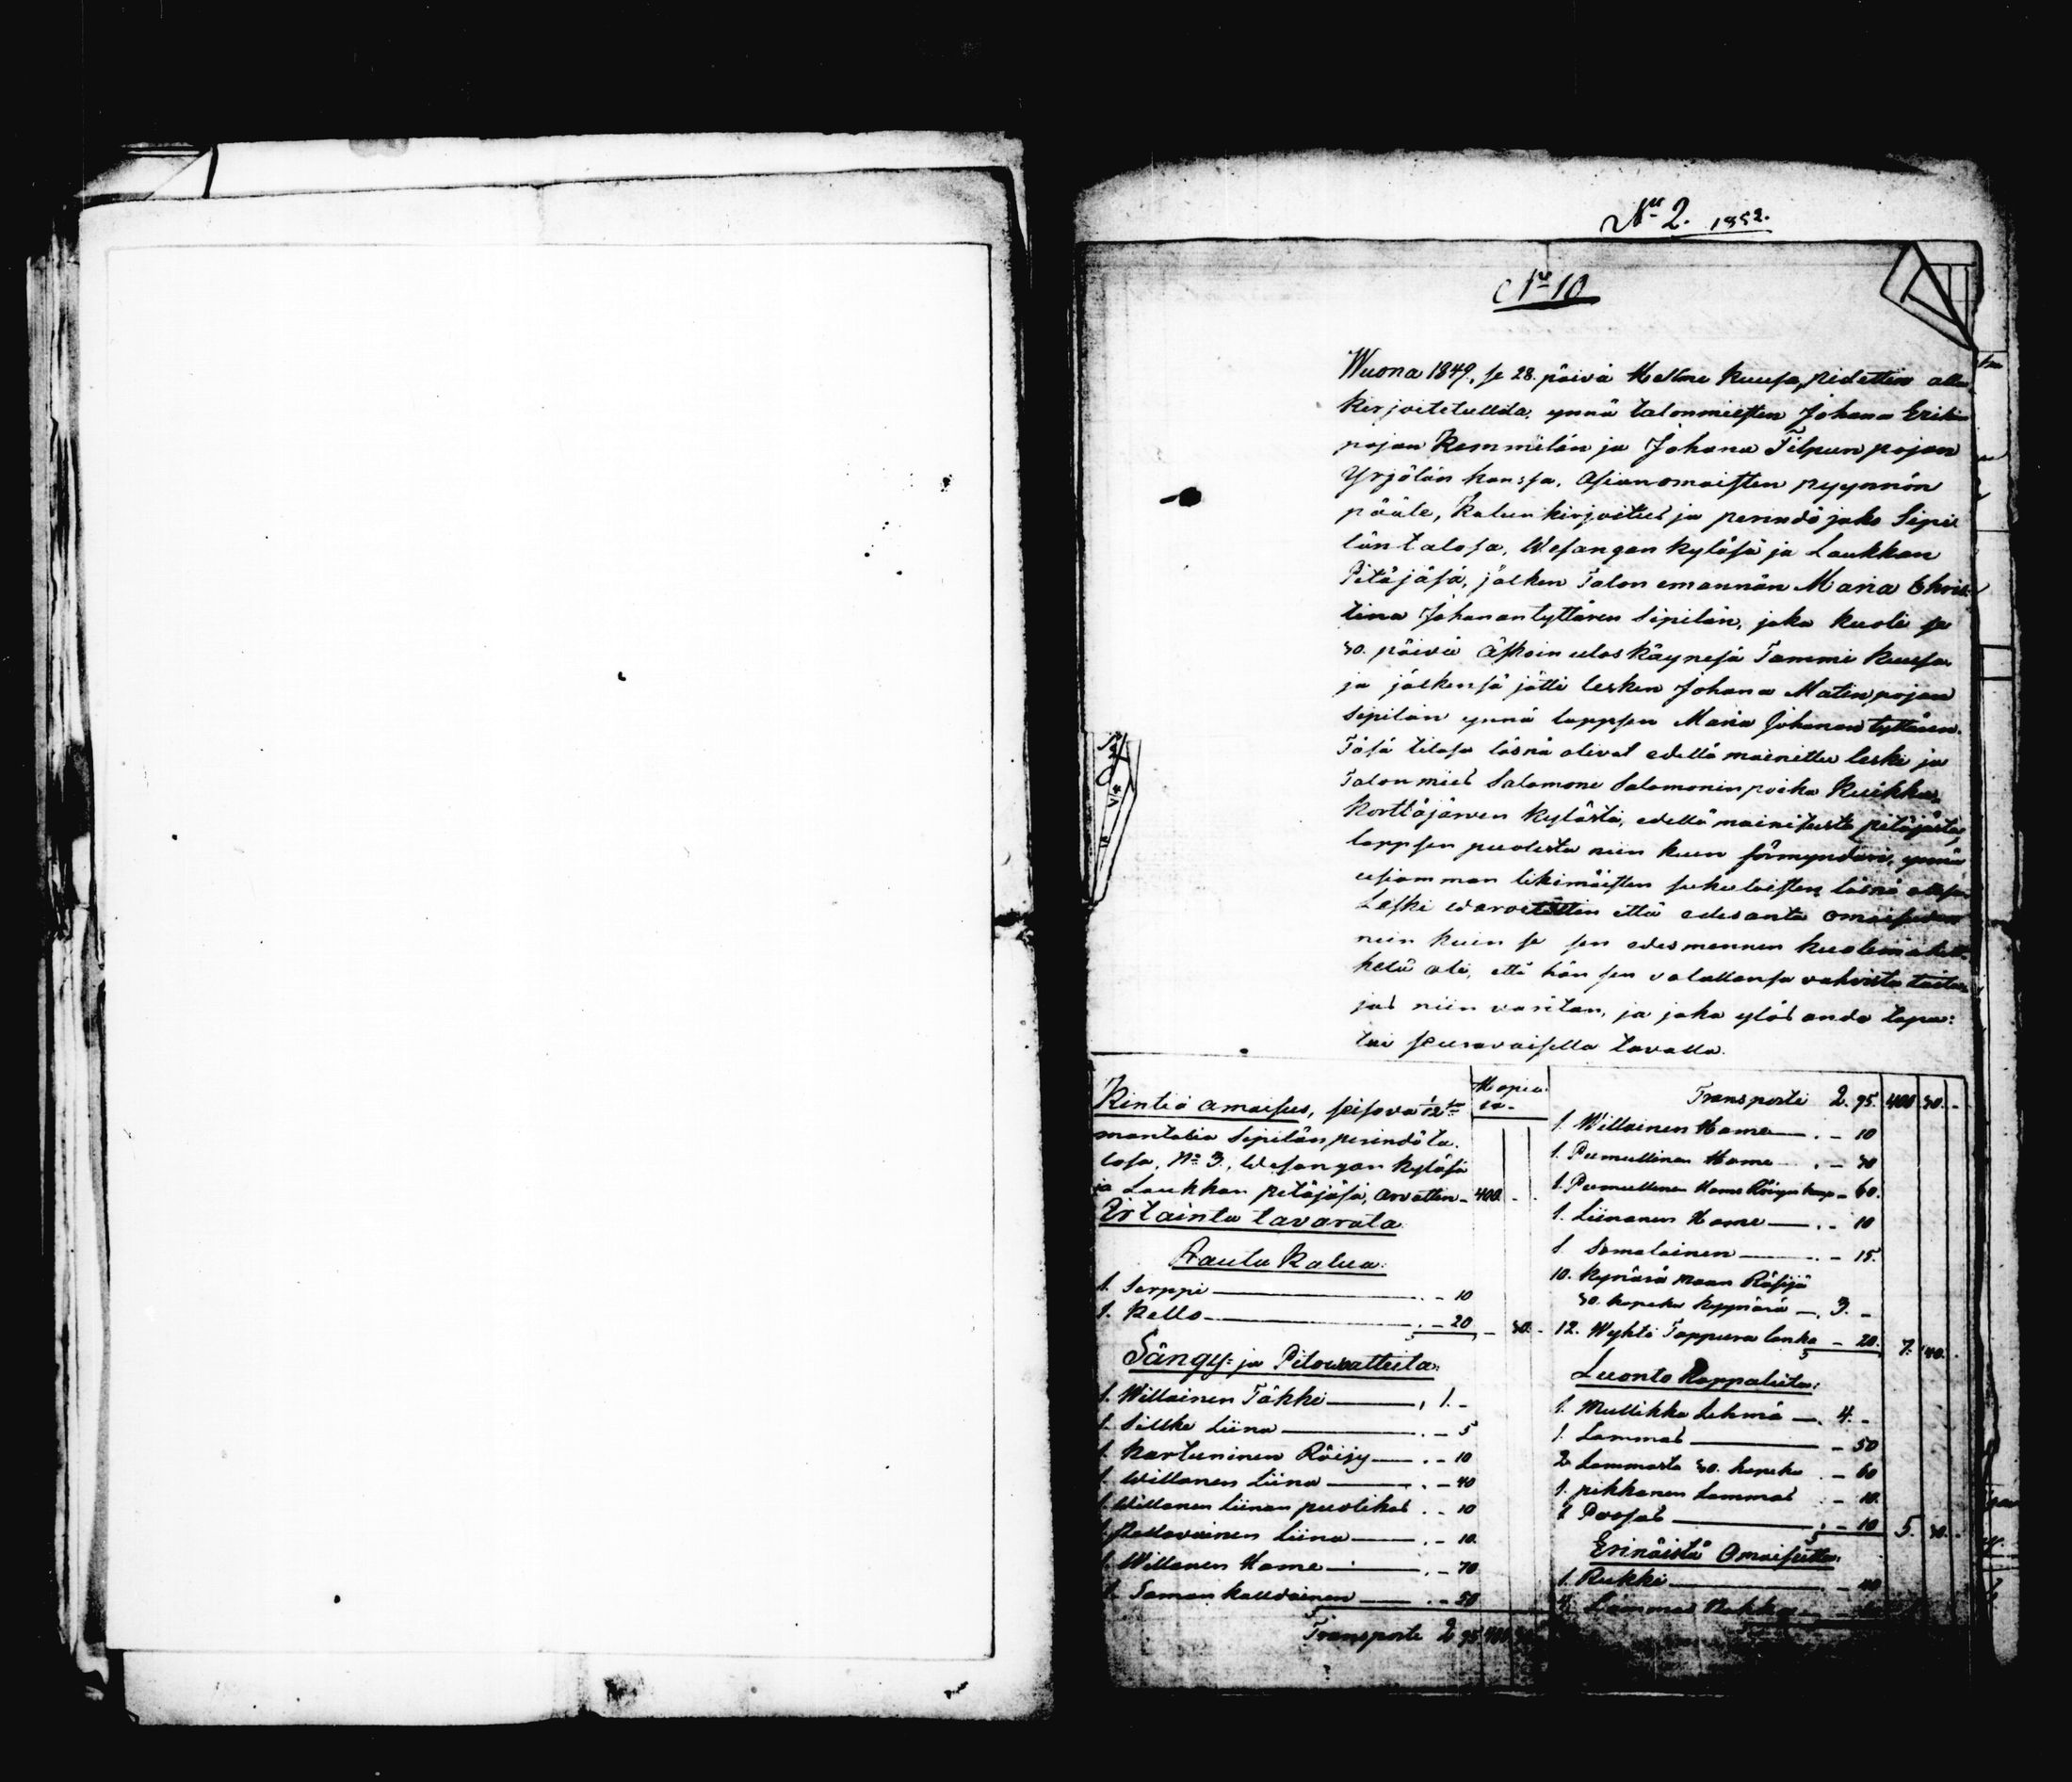 No 2. 1852.
No 10
Wuona 1849, se 28. päivä Helme kuusa, pidettin alla
kirjoitetulda, ynnä talonmiesten Johana Erikin
pojan Kemmilän ja Johana Filpun pojan
Yrjölän kanssa, Asianomaisten pyynnön
pääle, Kalun kirjoitus ja perindö jako Sipi
län talosa, Wesangan kyläsä ja Laukkan
Pitäjäsä, jälken Talon emännän Maria Chris
tina Johanantyttären Sipilän, joka kuoli se
30. päivä äskoin uloskäynesä Tammi kuusa
ja jälkensä jätti lesken Johana Matinpojan
Sipilän ynnä lappsen Maria Johanan tyttären.
Täsä tilasa läsnä olivat edellä mainittu leski ja
Talon mies Salomone Salomonin poika Kuikka,
Korttäjärven kylästä, edellä mainitusta pitäjästä,
lappsen puolesta niin kuin förmyndäri, ynnä
usiamman likimäisten sukulaisten läsnä ollesa.
Leski varoitettin että edesanta omaisuden
niin kuin se sen edesmennen kuoleman
helä oli, että hän sen valallansa vahvista taita,
jos niin varitan, ja joka ylös ando tapa:
tui seuravaisella tavalla.
Kintiä omaisus, seisova 1/12
mantalia Sipilän perindö ta
losa, No 3, Wesangan kyläsä
ja Laukkan pitäjäsä, arvattin - 400. -
Hopia
Irtainta tavarata
Rauta Kalua:
1. Serppi - 10
1. Kello - 20 - 30. -
Sängy= ja Pitovatteita:
1. Willainen Täkki 1. -
1. Silkki Liina - 5
1. Kartuuninen Röijy - 10
1. Willanen Liina - 40
1. Willanen liinan puolikas - 10
1. Liina - 10.
1. Willanen Hame - 70
1. Saman kalldainen - 50
Transporte 2. 95 400 30
Transporti 2. 95. 400 30. -
1. Willainen Hame - 10
1. Pumullinen Hame - 30
1. Pumullinen Hame Röijyn kanssa - 60.
1. Liinanen Hame - 10
1. Samalainen - 15.
10. kynärä maan Räsijä
30. kopeka kyynärä 3. -
12. Wyhti Tappura lanka - 20. 7. 40. -
Luonto Kappaleita:
1. Mullikka Lehmä 4. -
1. Lammas - 50
2 Lammasta 30. kopeka - 60
1. pikkanen Lammas - 10.
1 Porsas - 10 5. 30. -
Erinäistä Omaisutta:
1. Rukki - 40